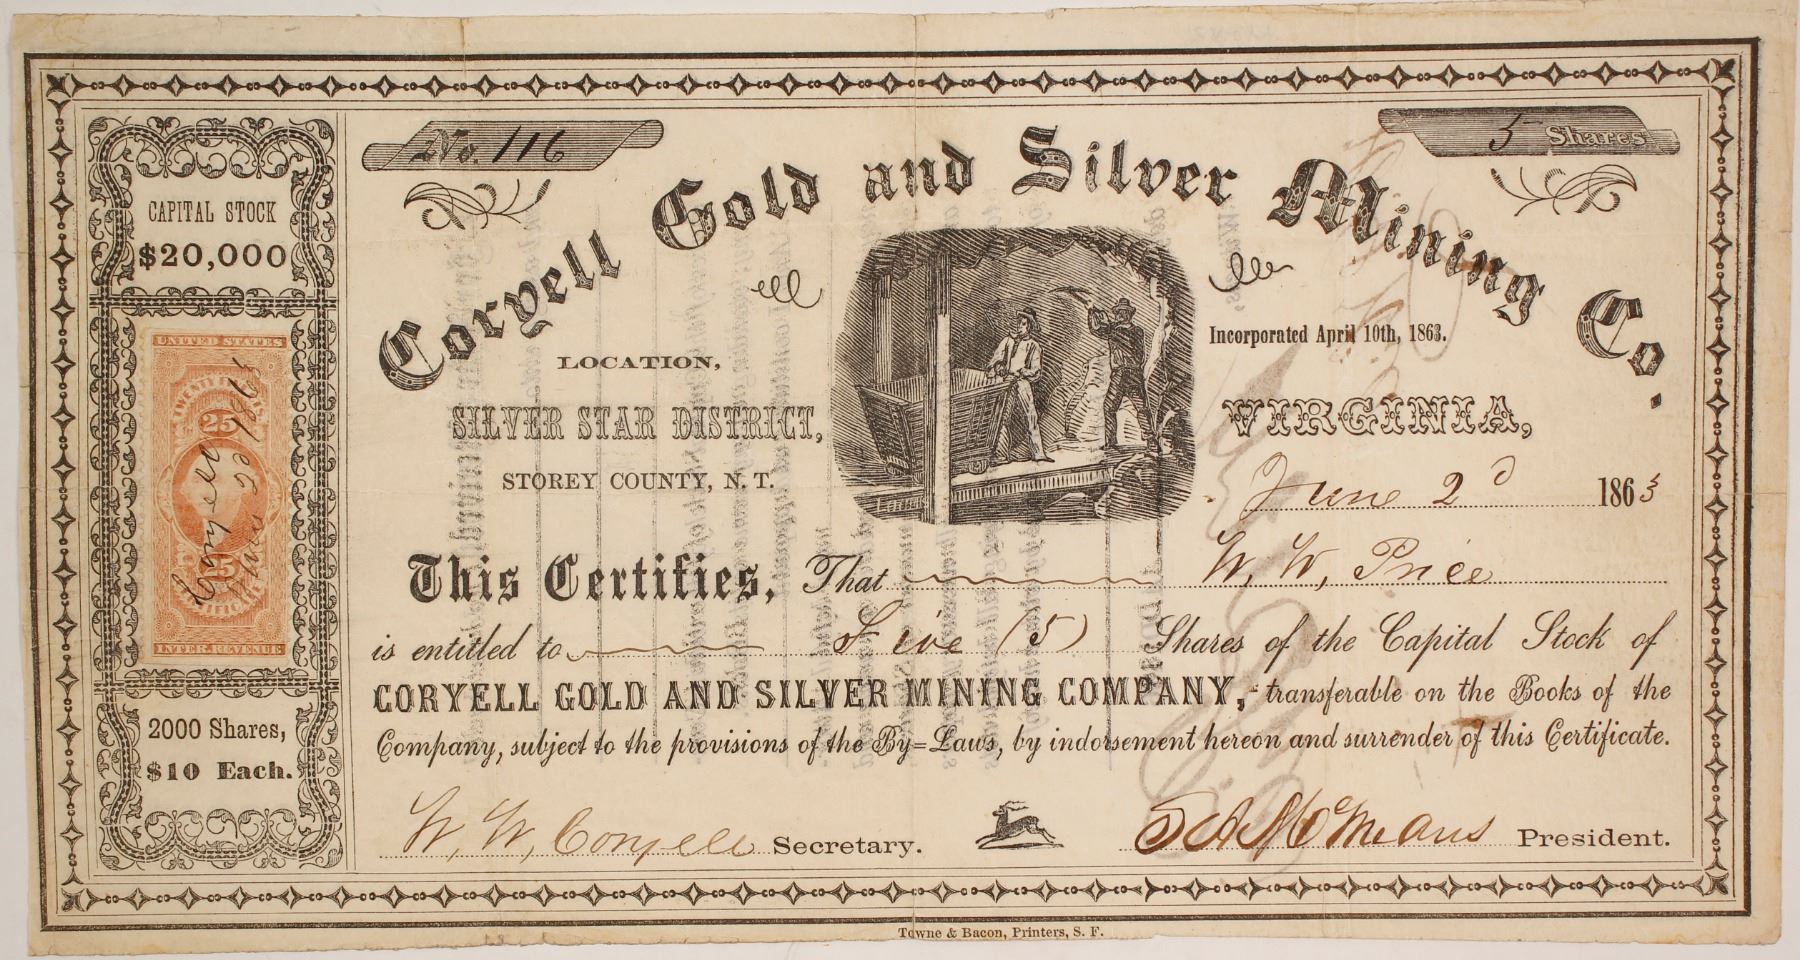 No. 116
5 Shares
Coryell Gold and Silver Mining Co.
CAPITAL STOCK
$20,000
UNITED STATES
25
25
CERTIFICATE
INTER. REVENUE
2000 Shares,
$10 Each.
LOCATION,
SILVER STAR DISTRICT,
STOREY COUNTY, N. T.
Incorporated April 10th, 1863.
VIRGINIA,
June 2d 1863
This Certifies, That W. W. Price
is entitled to Five (5) Shares of the Capital Stock of
CORYELL GOLD AND SILVER MINING COMPANY, transferable on the Books of the
Company, subject to the provisions of the By=Laws, by indorsement hereon and surrender of this Certificate.
W. W. Coryell Secretary.
President.
Towne & Bacon, Printers, S. F.